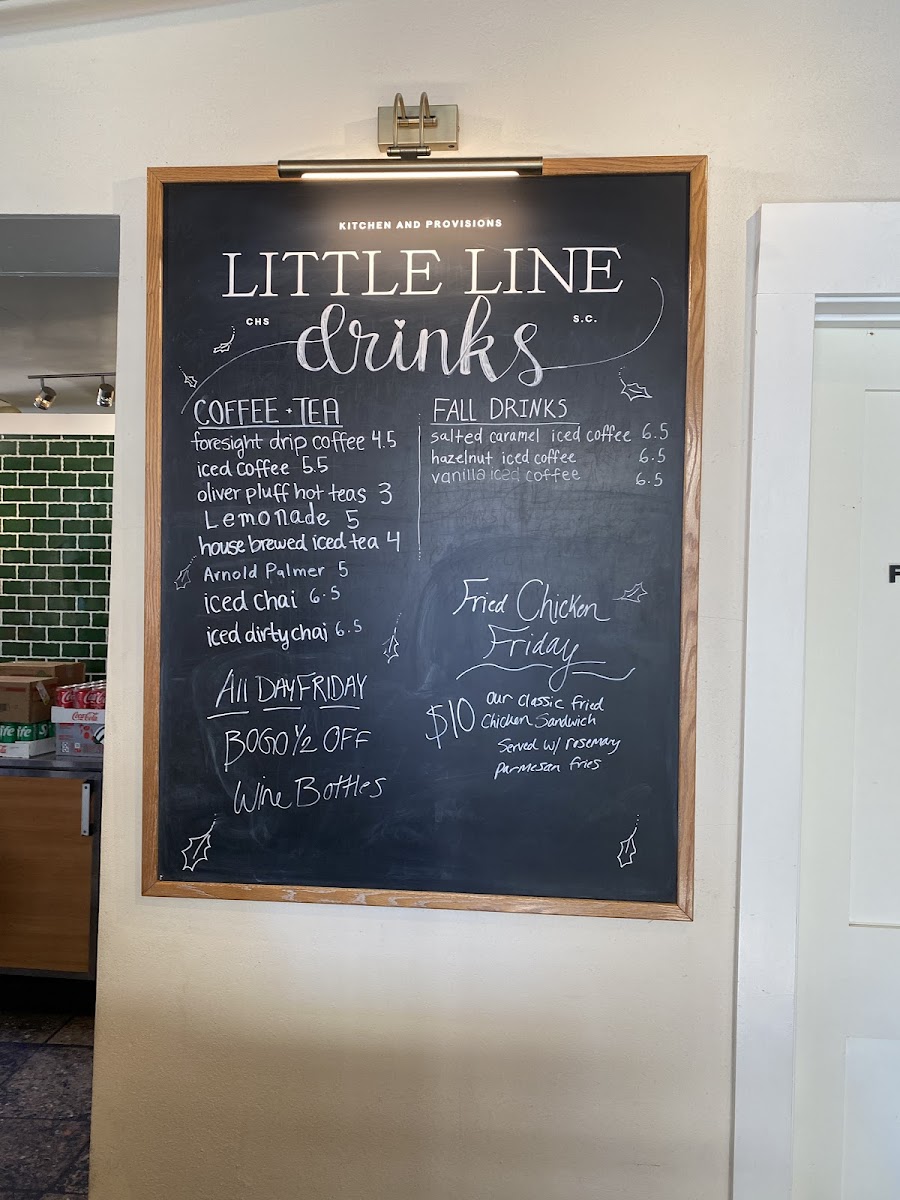 KITCHEN AND PROVISIONS
LITTLE LINE
CHS
S.C.
drinks
COFFEE + TEA
foresight drip coffee 4.5
iced coffee 5.5
oliver pluff hot teas 3
Lemonade 5
house brewed iced tea 4
Arnold Palmer 5
iced chai 6.5
iced dirty chai 6.5
All DAY FRIDAY
BOGO 1/2 OFF
Wine Bottles
FALL DRINKS
salted caramel iced coffee 6.5
hazelnut iced coffee 6.5
vanilla iced coffee 6.5
Fried Chicken
Friday
$10 our classic fried
Chicken Sandwich
Served w/ rosemary
parmesan fries
Coca-Cola
F